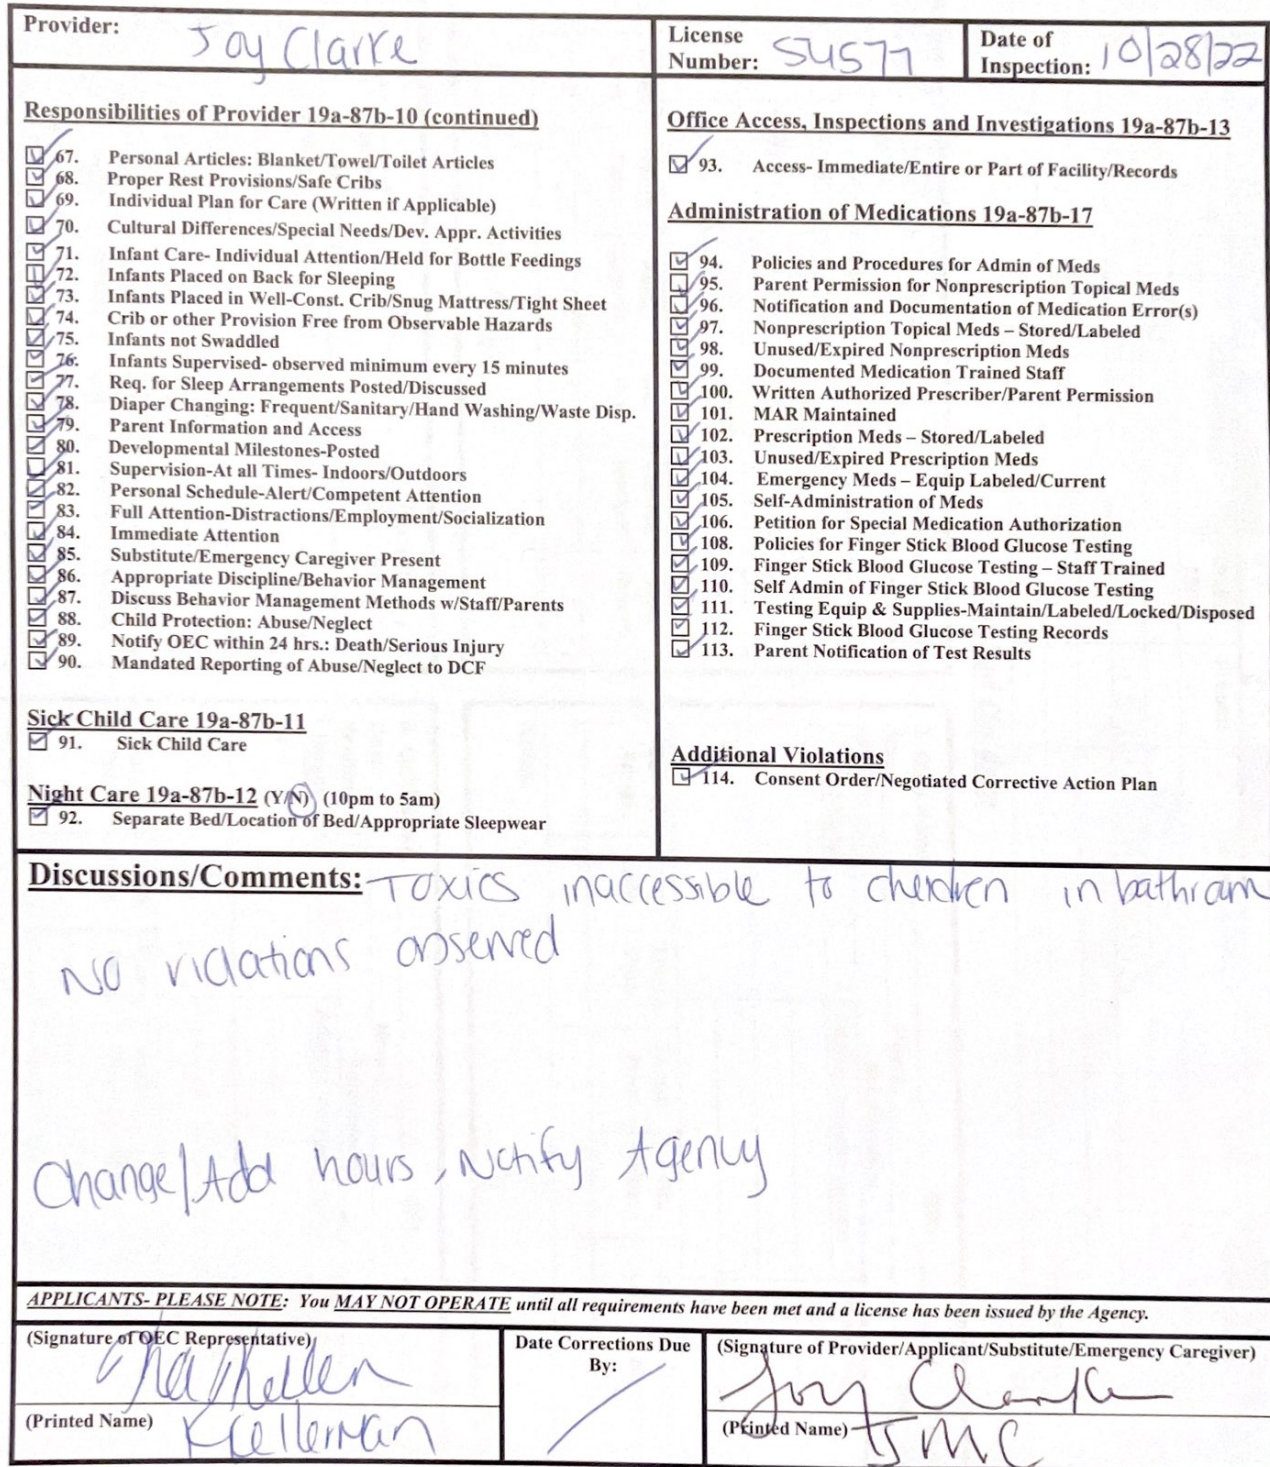 Provider: Joy Clarke
License Number: 54577
Date of Inspection: 10/28/22
Responsibilities of Provider 19a-87b-10 (continued)
67. Personal Articles: Blanket/Towel/Toilet Articles
68. Proper Rest Provisions/Safe Cribs
69. Individual Plan for Care (Written if Applicable)
70. Cultural Differences/Special Needs/Dev. Appr. Activities
71. Infant Care- Individual Attention/Held for Bottle Feedings
72. Infants Placed on Back for Sleeping
73. Infants Placed in Well-Const. Crib/Snug Mattress/Tight Sheet
74. Crib or other Provision Free from Observable Hazards
75. Infants not Swaddled
76. Infants Supervised- observed minimum every 15 minutes
77. Req. for Sleep Arrangements Posted/Discussed
78. Diaper Changing: Frequent/Sanitary/Hand Washing/Waste Disp.
79. Parent Information and Access
80. Developmental Milestones-Posted
81. Supervision-At all Times- Indoors/Outdoors
82. Personal Schedule-Alert/Competent Attention
83. Full Attention-Distractions/Employment/Socialization
84. Immediate Attention
85. Substitute/Emergency Caregiver Present
86. Appropriate Discipline/Behavior Management
87. Discuss Behavior Management Methods w/Staff/Parents
88. Child Protection: Abuse/Neglect
89. Notify OEC within 24 hrs.: Death/Serious Injury
90. Mandated Reporting of Abuse/Neglect to DCF
Sick Child Care 19a-87b-11
91. Sick Child Care
Night Care 19a-87b-12 (Y/N) (10pm to 5am)
92. Separate Bed/Location of Bed/Appropriate Sleepwear
Office Access, Inspections and Investigations 19a-87b-13
93. Access- Immediate/Entire or Part of Facility/Records
Administration of Medications 19a-87b-17
94. Policies and Procedures for Admin of Meds
95. Parent Permission for Nonprescription Topical Meds
96. Notification and Documentation of Medication Error(s)
97. Nonprescription Topical Meds – Stored/Labeled
98. Unused/Expired Nonprescription Meds
99. Documented Medication Trained Staff
100. Written Authorized Prescriber/Parent Permission
101. MAR Maintained
102. Prescription Meds – Stored/Labeled
103. Unused/Expired Prescription Meds
104. Emergency Meds – Equip Labeled/Current
105. Self-Administration of Meds
106. Petition for Special Medication Authorization
108. Policies for Finger Stick Blood Glucose Testing
109. Finger Stick Blood Glucose Testing – Staff Trained
110. Self Admin of Finger Stick Blood Glucose Testing
111. Testing Equip & Supplies-Maintain/Labeled/Locked/Disposed
112. Finger Stick Blood Glucose Testing Records
113. Parent Notification of Test Results
Additional Violations
114. Consent Order/Negotiated Corrective Action Plan
Discussions/Comments: Toxics inaccessible to children in bathroom
No violations observed
Change/Add hours, Notify Agency
APPLICANTS- PLEASE NOTE: You MAY NOT OPERATE until all requirements have been met and a license has been issued by the Agency.
(Signature of OEC Representative)
(Printed Name) Kellerman
Date Corrections Due By:
(Signature of Provider/Applicant/Substitute/Emergency Caregiver)
Joy Clarke
(Printed Name) JMC